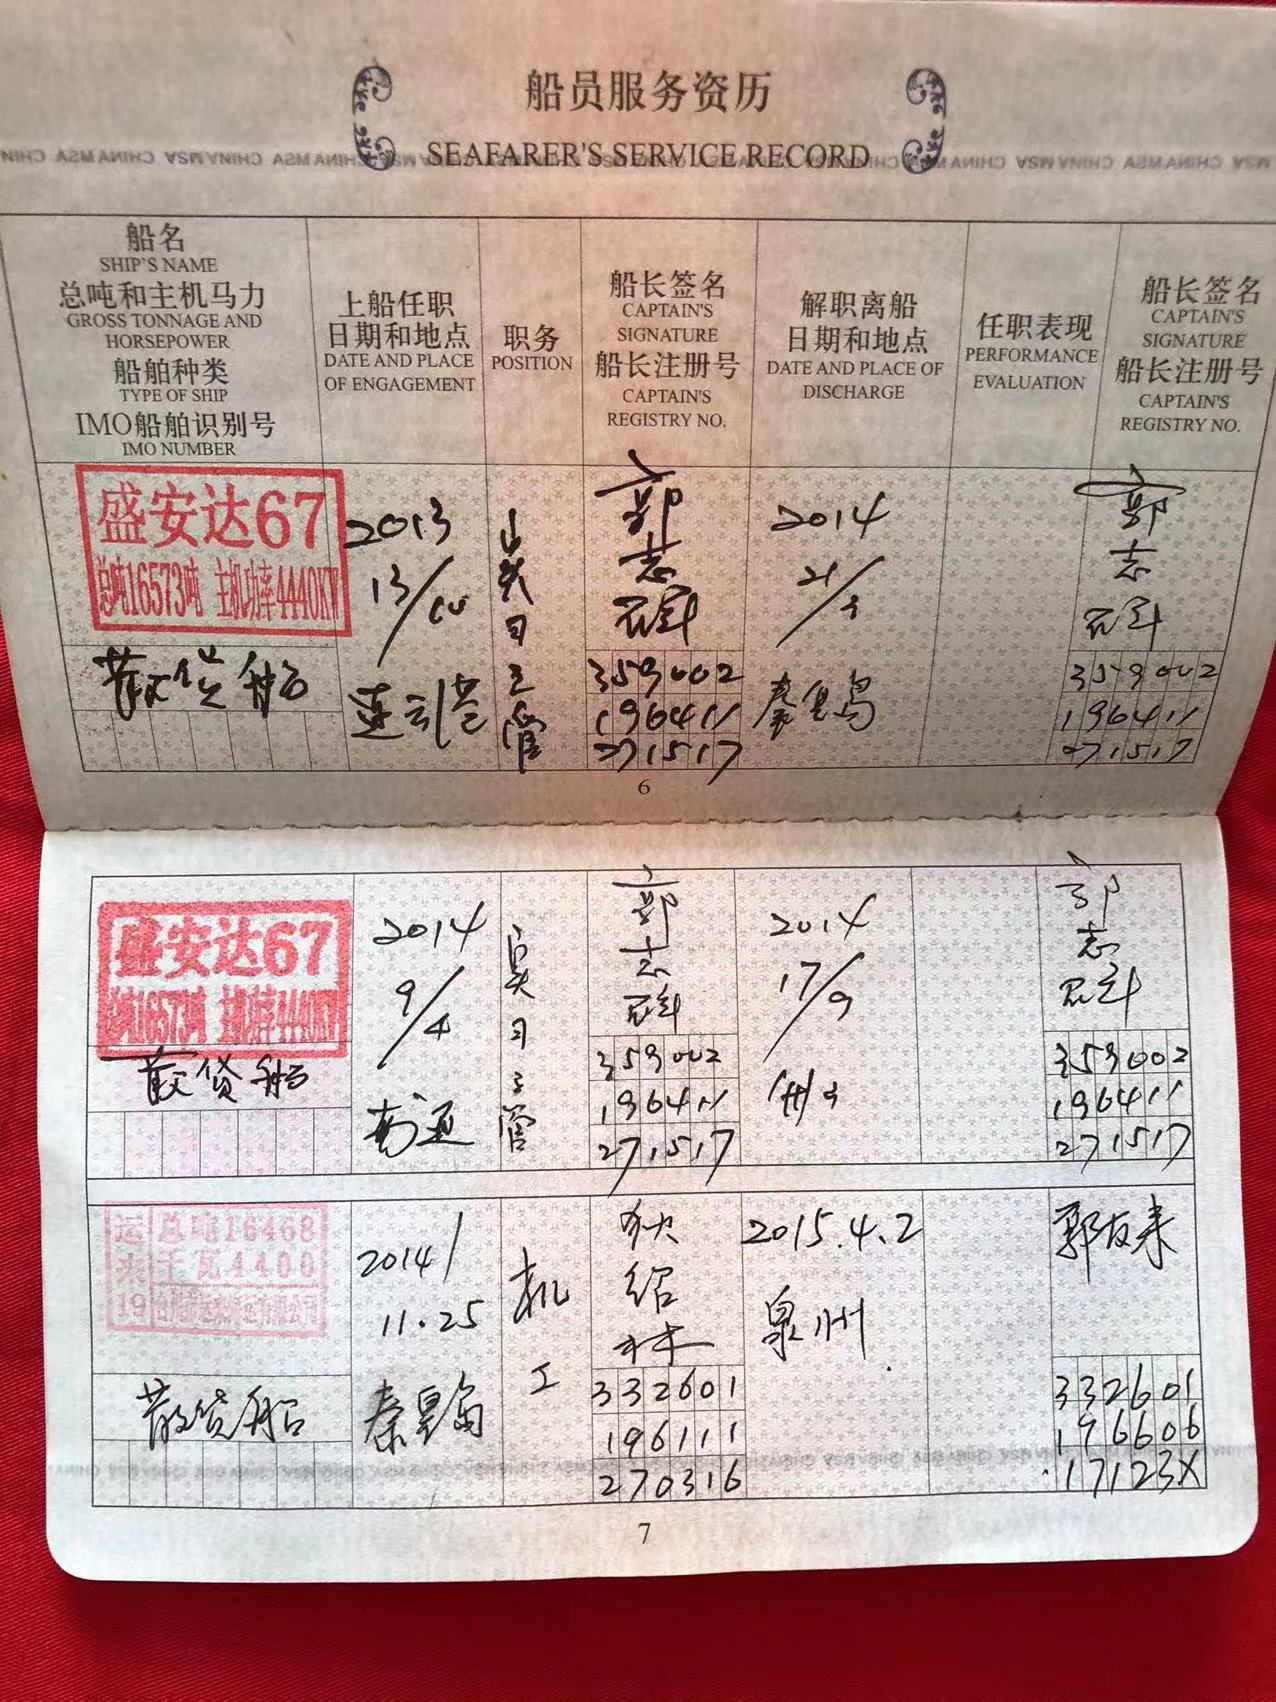 船员服务资历
SEAFARER'S SERVICE RECORD
船名
SHIP'S NAME
总吨和主机马力
GROSS TONNAGE AND
HORSEPOWER
船舶种类
TYPE OF SHIP
IMO船舶识别号
IMO NUMBER
上船任职
日期和地点
DATE AND PLACE
OF ENGAGEMENT
职务
POSITION
船长签名
CAPTAIN'S
SIGNATURE
船长注册号
CAPTAIN'S
REGISTRY NO.
解职离船
日期和地点
DATE AND PLACE OF
DISCHARGE
任职表现
PERFORMANCE
EVALUATION
船长签名
CAPTAIN'S
SIGNATURE
船长注册号
CAPTAIN'S
REGISTRY NO.
盛安达67
总吨16573吨 主机功率4440KW
散货船
2013
连云港
见习三管
郭
志
359002
196411
271517
2014
21/3
秦皇岛
郭
志
359002
196411
271517
6
盛安达67
总吨16573吨 主机功率4440KW
散货船
2014
9/4
南通
见习三管
郭
志
359002
196411
271517
2014
17/9
郭
志
359002
196411
271517
运来19
总吨16468
千瓦4400
散货船
2014/
11.25
秦皇岛
机工
狄
绍
林
332601
196111
270316
2015.4.2
泉州
郭友来
332601
196606
17123X
7